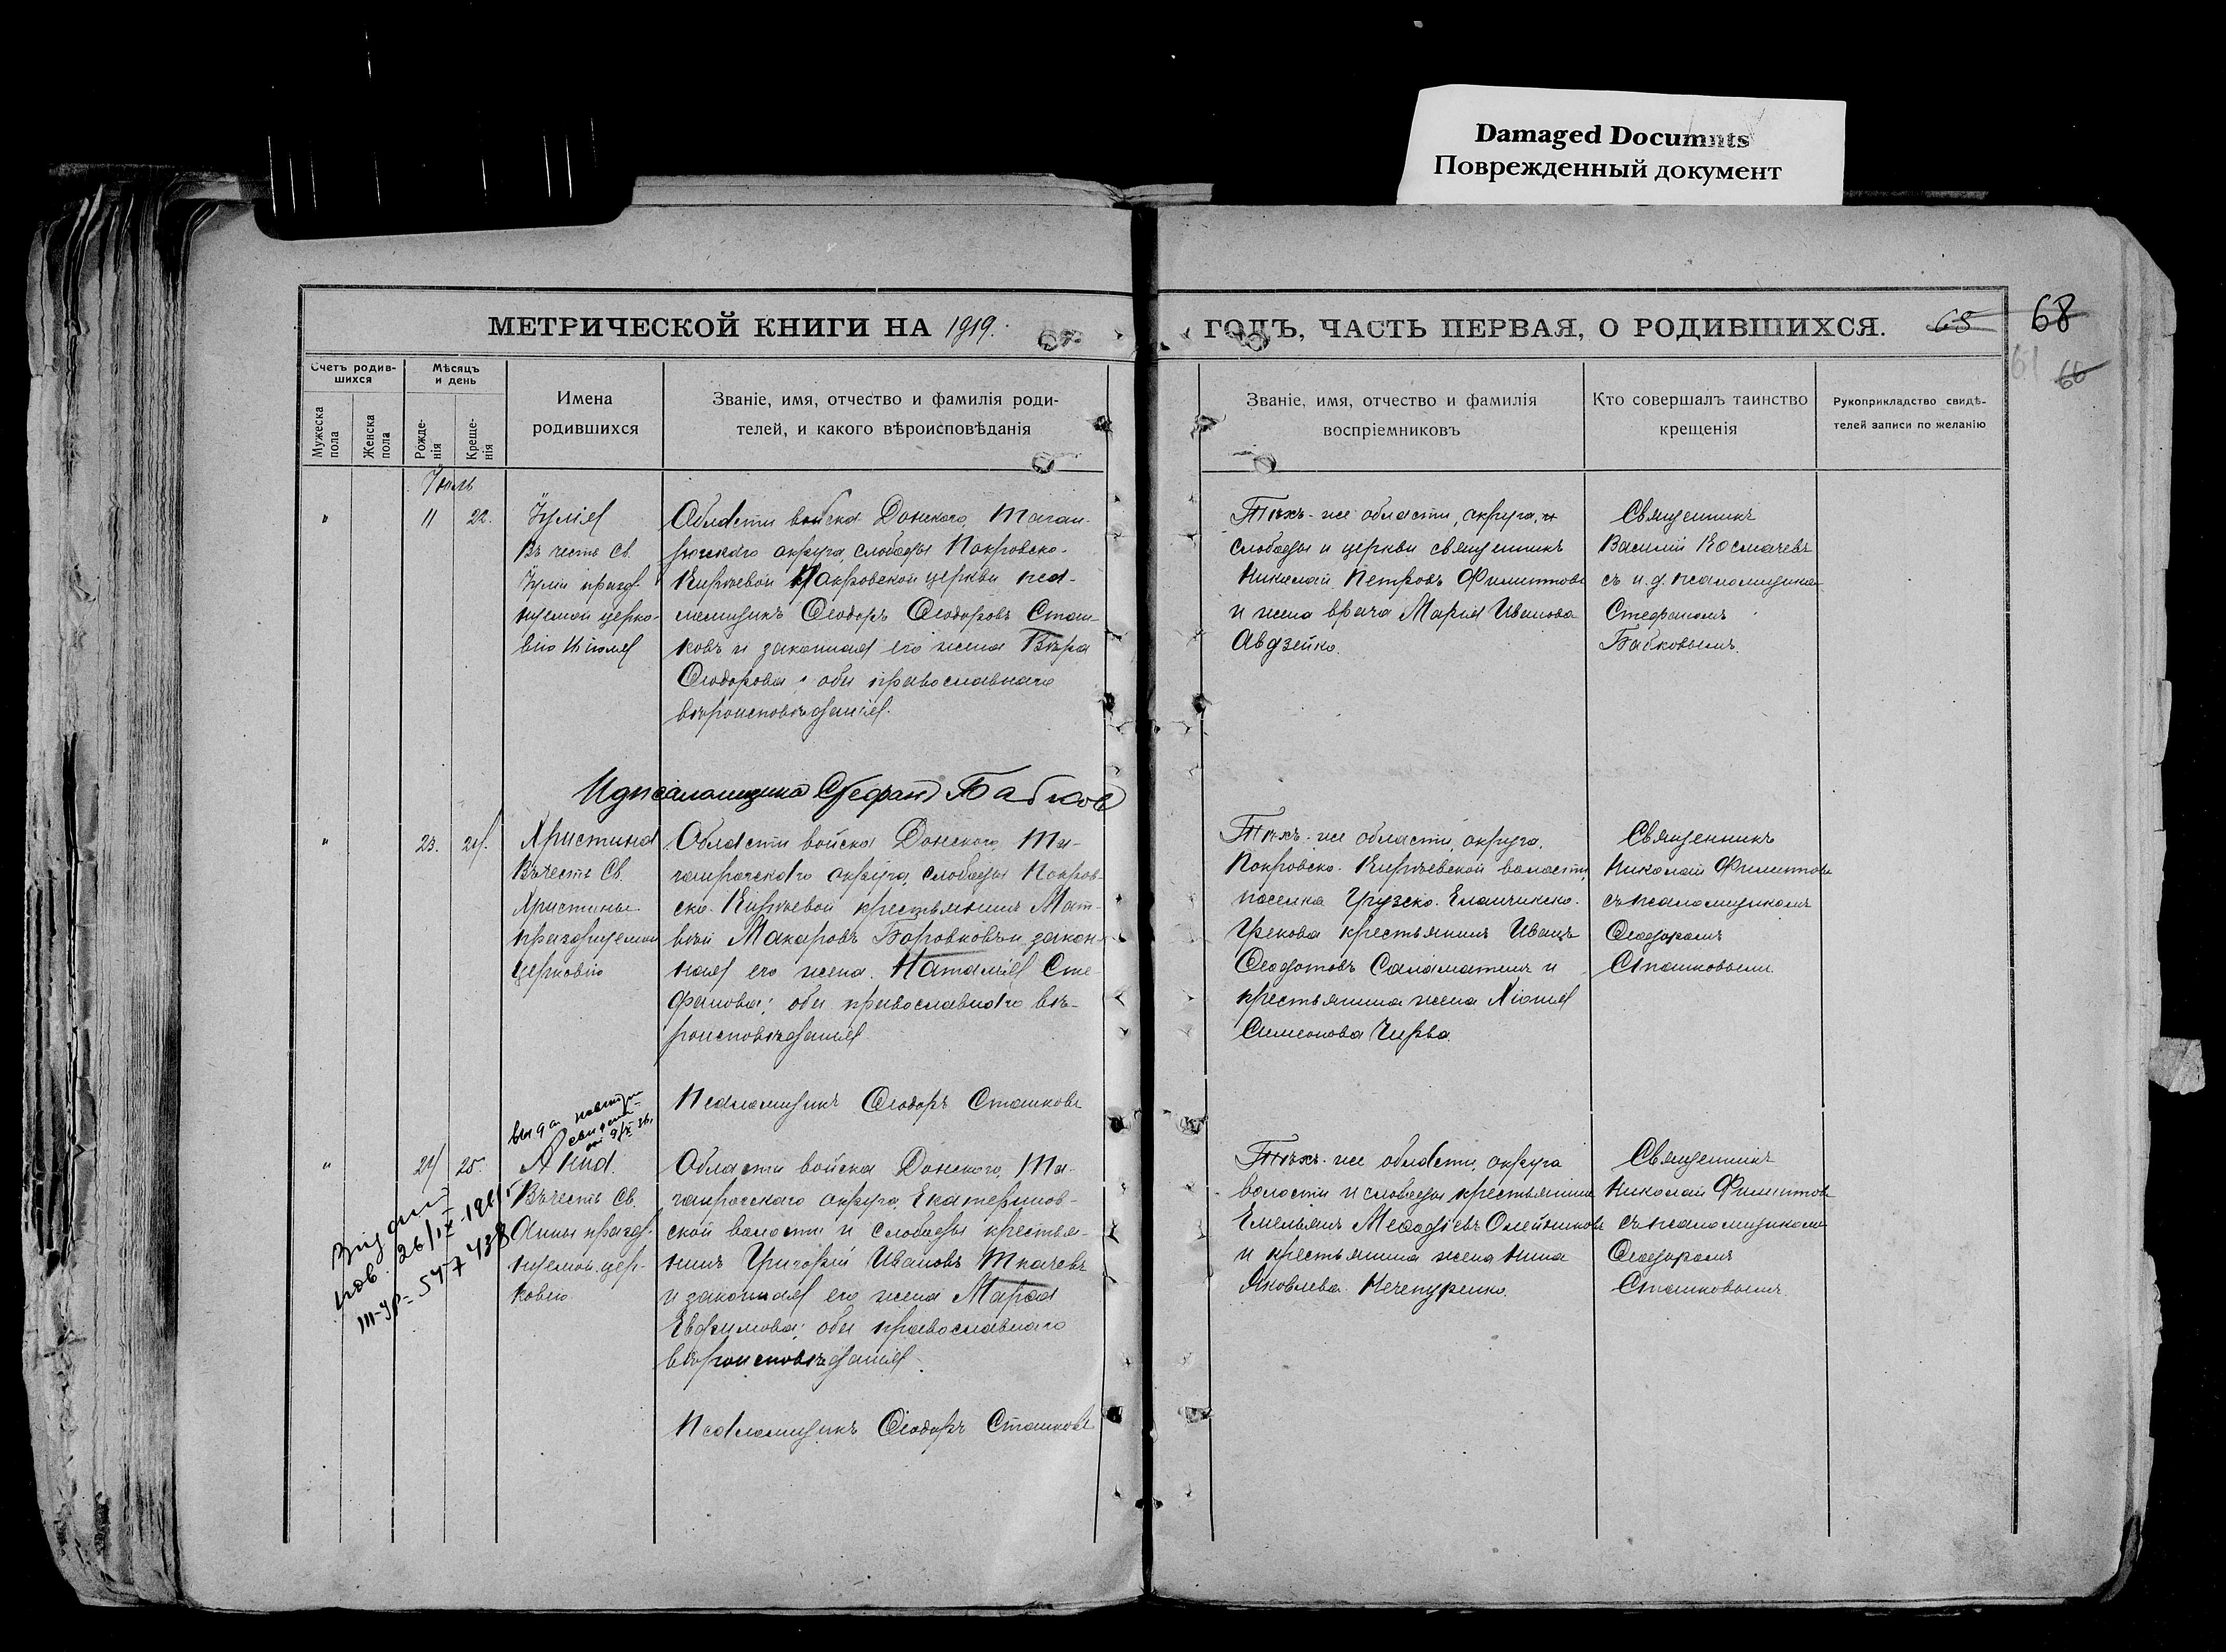 Damaged Documents
Поврежденный документ
МЕТРИЧЕСКОЙ КНИГИ НА 1919.
ГОДЪ, ЧАСТЬ ПЕРВАЯ, О РОДИВШИХСЯ.
65
68
61
66
Счетъ родив-
шихся
Мужеска
пола
Женска
пола
Мѣсяцъ
и день
Рожде-
нія
Креще-
нія
Имена
родившихся
Званіе, имя, отчество и фамилія роди-
телей, и какого вѣроисповѣданія
Званіе, имя, отчество и фамилія
воспріемниковъ
Кто совершалъ таинство
крещенія
Рукоприкладство свидѣ-
телей записи по желанію
Іюль
"
11
22.
Іулія
Въ честь Св.
Іуліи празд-
нуемой церко-
вію
Области войска Донского, Таган-
рогскаго округа, слободы Покровско-
Кирѣевой Покровской церкви пса-
ломщикъ Ѳеодоръ Ѳеодоровъ Сташ-
ковъ и законная его жена Вѣра
Ѳеодорова; оба православнаго
вѣроисповѣданія.
Тѣхъ-же области, округа, и
слободы и церкви священникъ
Николай Петровъ Филипповъ
и жена врача Марія Иванова
Авдзейко.
Священникъ
Василій Космачевъ
съ и.д. псаломщика
Стефаномъ
Бабковымъ.
И д псаломщика Стефанъ Бабковъ
"
23.
24.
Христина
Въ честь Св.
Христины
празднуемой
церковію
Области войска Донского, Та-
ганрогскаго округа, слободы Покров-
ско-Кирѣевой крестьянинъ Мат-
вѣй Макаровъ Боровковъ и закон-
ная его жена Наталія Сте-
фанова; оба православнаго вѣ-
роисповѣданія
Тѣхъ-же области, округа,
Покровско-Кирѣевской волости,
поселка Грузско-Еланчикско-
Грекова крестьянинъ Иванъ
Ѳеодотовъ Саламатинъ и
крестьянина жена
Симеонова Чирва.
Священникъ
Николай Филипповъ
съ псаломщикомъ
Ѳеодоромъ
Сташковымъ
Псаломщикъ Ѳеодоръ Сташковъ
"
24
25.
Анна.
Въ честь Св.
Анны празд-
нуемой цер-
ковію
Области войска Донского, Та-
ганрогскаго округа, Екатеринов-
ской волости и слободы крестья-
нинъ Григорій Ивановъ Ткачевъ
и законная его жена Марѳа
Евфимова; оба православнаго
вѣроисповѣданія.
Тѣхъ-же области, округа
волости и слободы крестьянинъ
Емельянъ Меѳодіевъ Олейниковъ
и крестьянина жена Нина
Яковлева Нечепуренко.
Священникъ
Николай Филипповъ
съ псаломщикомъ
Ѳеодоромъ
Сташковымъ.
Псаломщикъ Ѳеодоръ Сташковъ